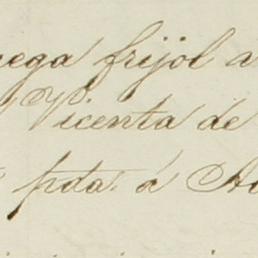 nega frijol a
Vicenta de
pda. á